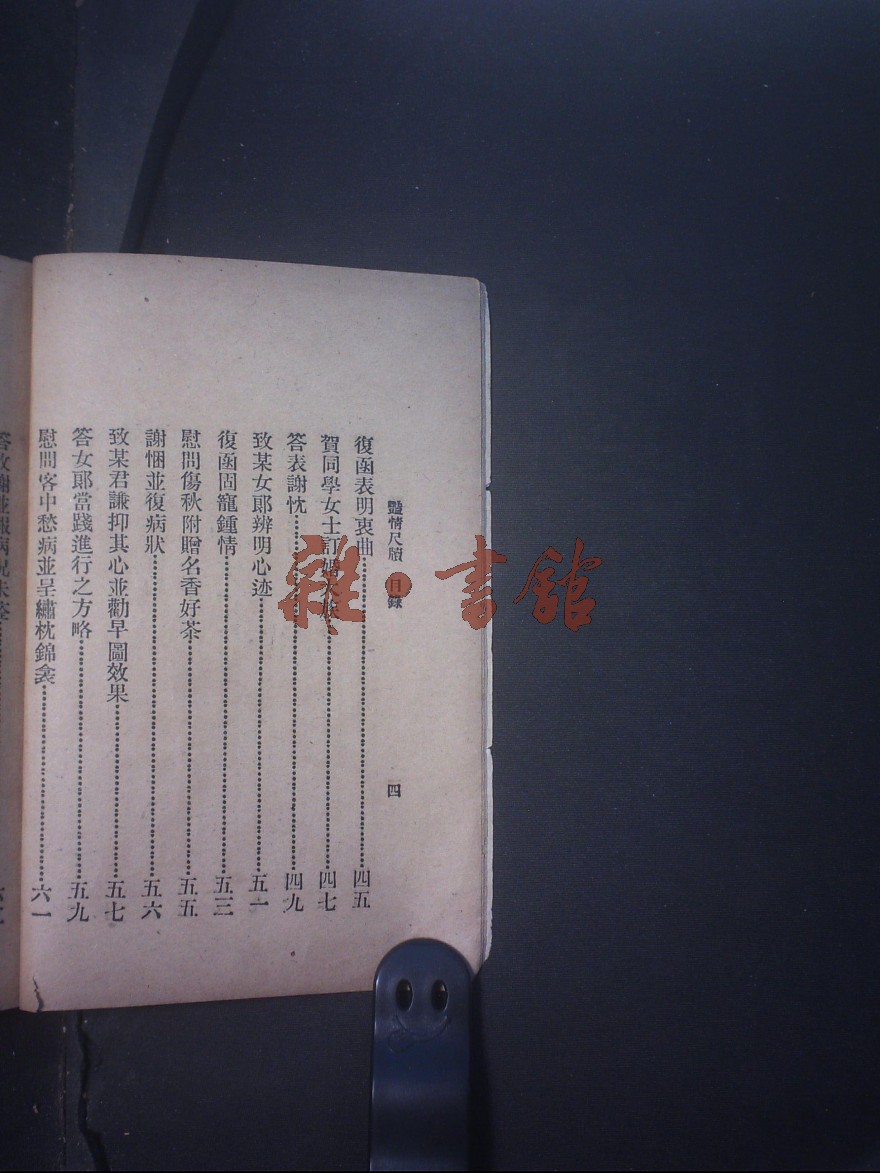 艷情尺牘 目錄 四
復函表明衷曲 四五
賀同學女士訂婚 四七
答表謝忱 四九
致某女郎辨明心迹 五一
復函固寵鍾情 五三
慰問傷秋附贈名香好茶 五五
謝悃並復病狀 五六
致某君謙抑其心並勸早圖效果 五七
答女郎當踐進行之方略 五九
慰問客中愁病並呈繡枕錦衾 六一
雜·書館